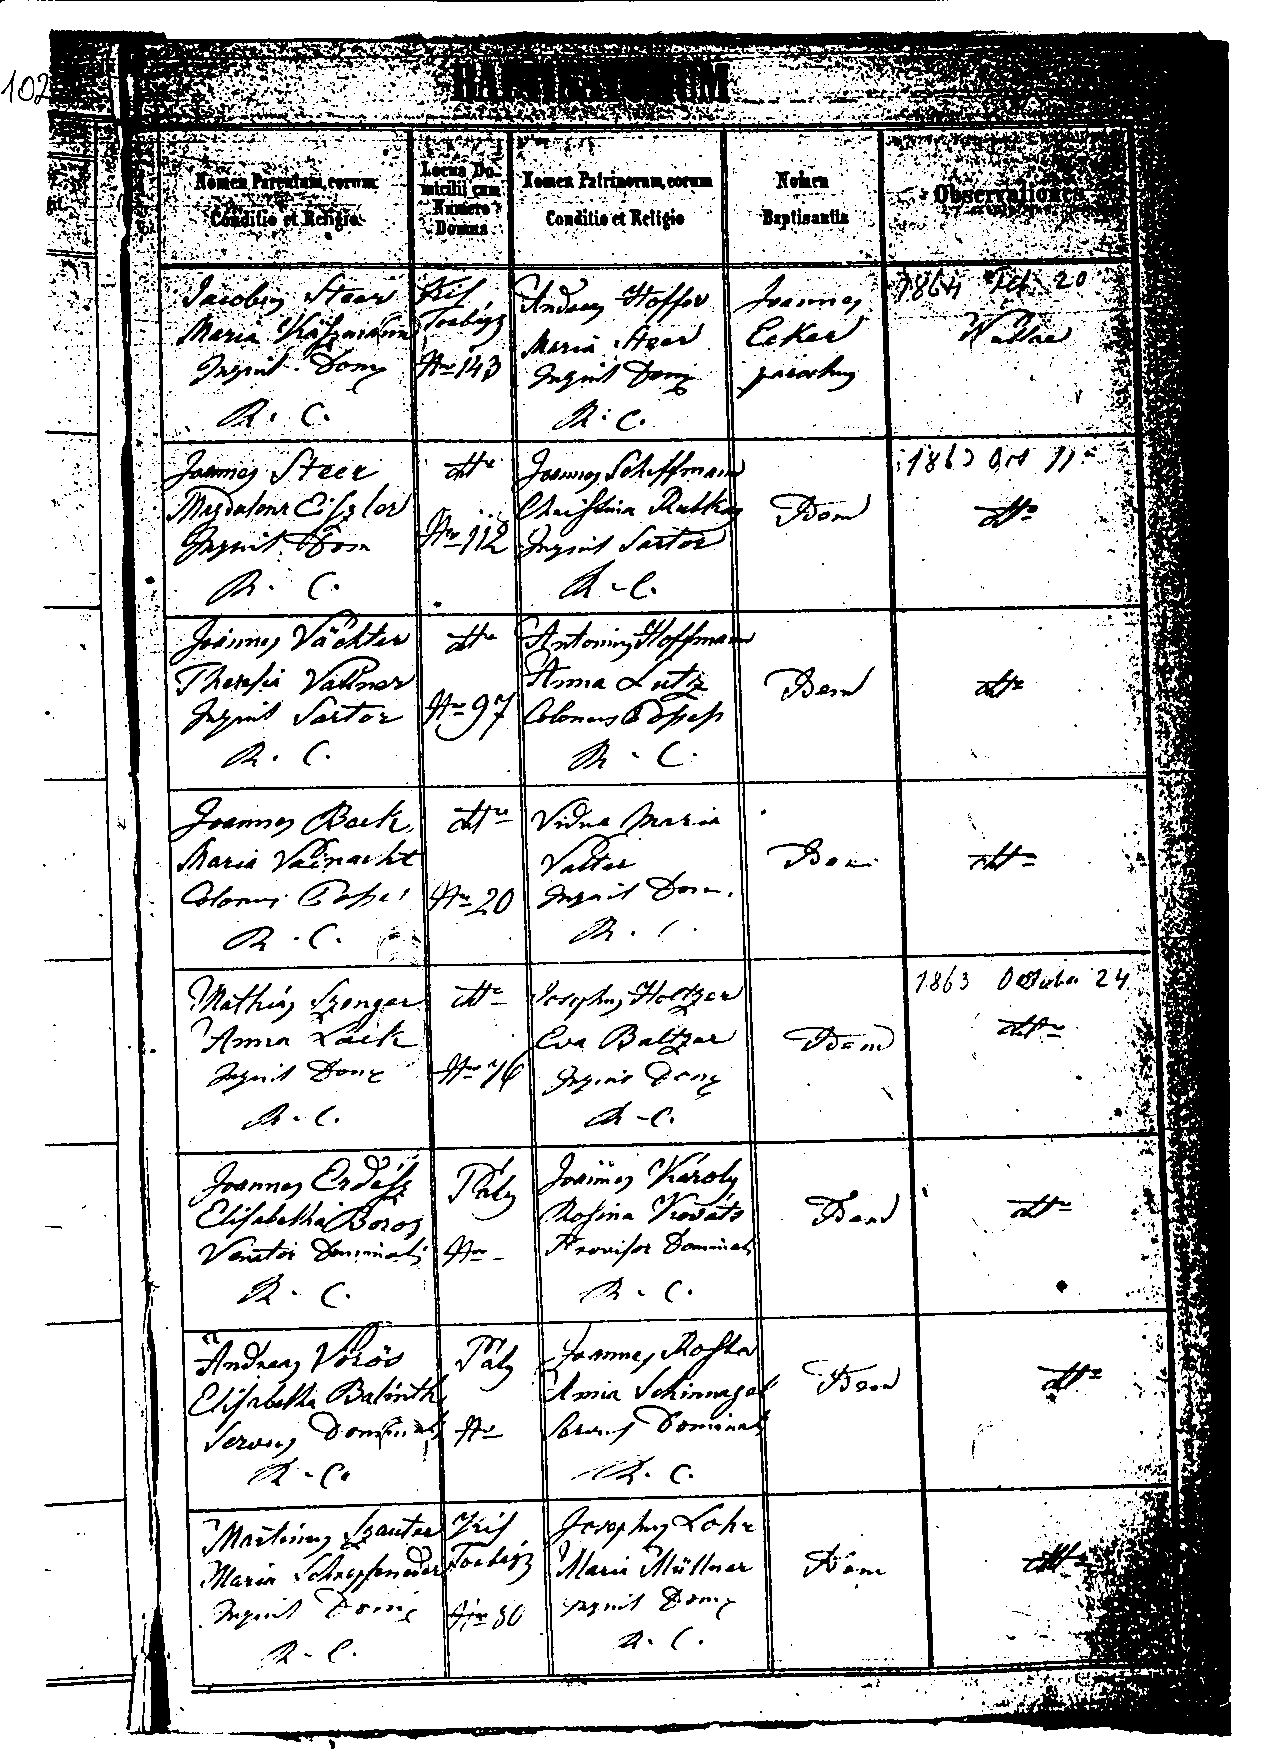 102
BAPTISATORUM
Nomen Parentum, eorum
Conditio et Religio
Locus Do-
micilii cum
Numero
Domus
Nomen Patrinorum, eorum
Conditio et Religio
Nomen
Baptisantis
Observationes
Jacobus Steer
Maria
Inquil. Dom
R. C.
Kis
Torbágy
Nro 143
Andreas Hoffer
Maria Steer
Inquil Dom
R. C.
Joannes
Ecker
parochus
1864 Feb. 20
Joannes Steer
Magdalena Eiszler
Inquil Dom
R. C.
dtto
Nro 112
Joannes Schiffmann
Christina
Inquil Sartor
R. C.
Idem
1863 Oct 11
dtto
Joannes Vächter
Theresia
Inquil Sartor
R. C.
dtto
Nro 97
Antonius Hoffmann
Anna Lutz
Colonus
R. C.
Idem
dtto
Joannes Back
Maria
Colonus
R. C.
dtto
Nro 20
Vidua Maria
Valter
Inquil Dom.
R. C.
Idem
dtto
Mathias Szenger
Anna Lack
Inquil Dom
R. C.
dtto
Nro 76
Josephus Holtzer
Eva Baltzer
Inquil Dom
R. C.
Idem
1863 October 24
dtto
Joannes Erdész
Elisabetha Boros
Venator Dominalis
R. C.
Páty
Nro -
Joannes Károly
Rosina Kováts
Provisor Dominalis
R. C.
Idem
dtto
Andreas Vörös
Elisabetha Balinth
Servus Dominalis
R. C.
Páty
Nro
Joannes Roska
Anna Schinnagel
Servus Dominalis
R. C.
Idem
dtto
Martinus Szauter
Maria
Inquil Dom
R. C.
Kis
Torbágy
Nro 80
Josephus Lohr
Maria Müllner
Inquil Dom
R. C.
Idem
dtto